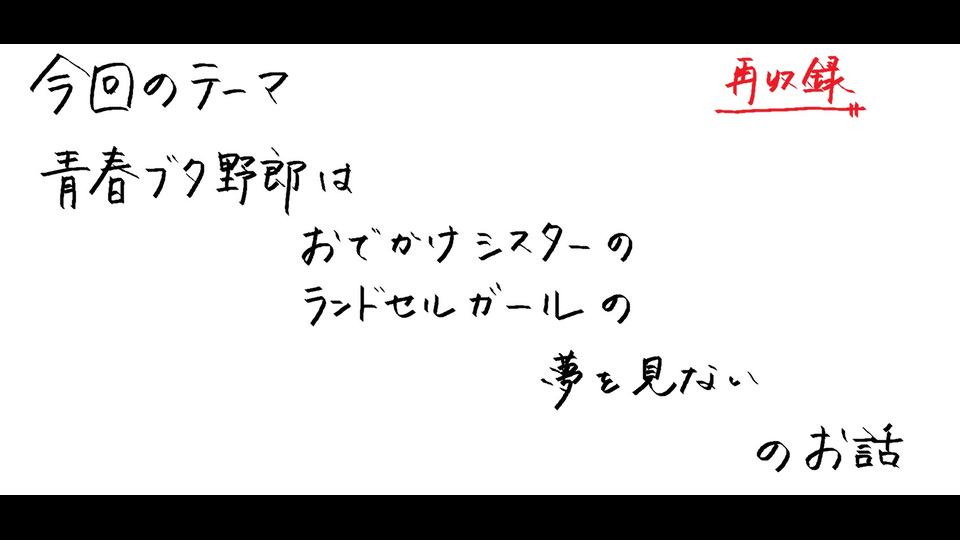 今回のテーマ
再収録
青春ブタ野郎は
おでかけシスターの
ランドセルガールの
夢を見ない
のお話